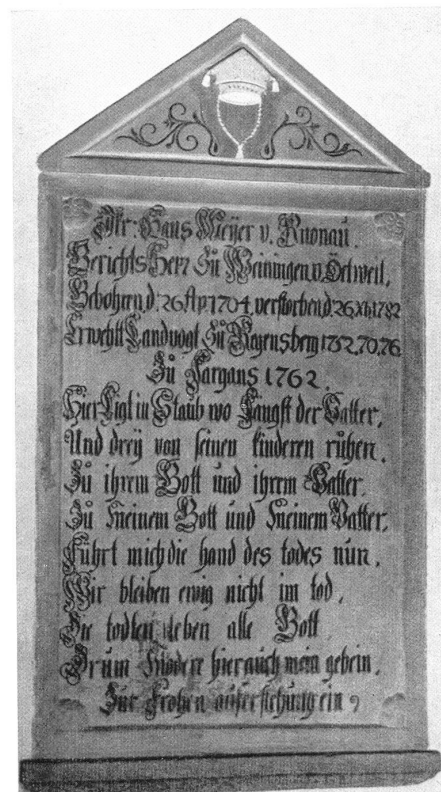 Mr: Hans Meÿer v. Knonau.
Gerichts Herr Zu Weiningen u. Oetweil,
Gebohren, d: 26. Ap. 1704, verstorben, d. 26. XI, 1782
Erwehlt Landvogt Zu Regensberg 1752, 70, 76
Zu Sargans 1762.
Hier Ligt in Staub wo Langst der Vatter,
Und dreÿ von seinen kinderen rühen.
Zu ihrem Gott und ihrem Vatter.
Zu meinem Gott und meinem Vatter.
Führt mich die hand des todes nun,
Wir bleiben ewig nicht im tod,
Die todten leben alle Gott
Drum modere hier auch mein gebein,
Zur Frohen auferstehung ein